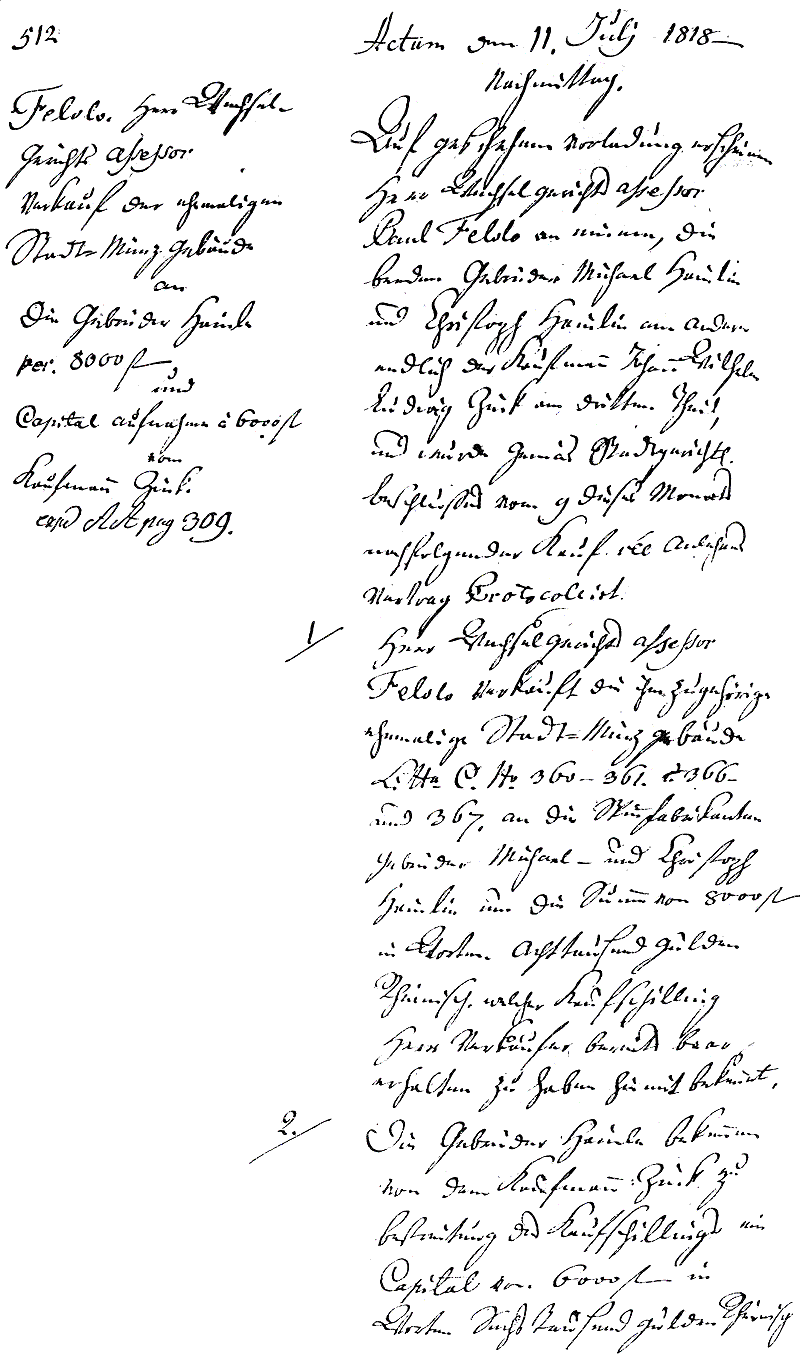 512
Felolo. Herr Wechsel-
Gerichts Assessor
Verkauf der ehemaligen
Stadt=Münz Gebäude
an
Die Gebrüder Heinle
per. 8000 f
und
Capital aufnahme à 6000 f
vom
Kaufmann Zink.
pag 309.
Actum den 11. July 1818
Nachmittag.
Auf geschehene Vorladung erscheinen
Herr Wechselgerichts Assessor
Paul Felolo an einem, die
beeden Gebrüder Michael Heinlin
und Christoph Heinlin am andern
endlich der Kaufmann Johann Wilhelm
Ludwig Zink am dritten Theil,
und wurde gemäs Stadtgerichtl.
beschlusses vom 9 dieses Monats
nachfolgender Kauf Anlehens
Vertrag Protocollirt.
1/
Herr Wechselgerichts Assessor
Felolo verkauft die ihm zugehörige
ehemalige Stadt=Münz gebäude
Litta C. No 360 – 361. & 366 –
und 367. an die
gebrüder Michael – und Christoph
Heinlin um die Summe von 8000 f
in Worten Achttausend Gulden
Rheinisch, welcher Kaufschilling
Herr Verkäufer bereits baar
erhalten zu haben hiemit bekennt.
2./
Die Gebrüder Heinle bekennen
von dem Kaufmann Zink zu
bestreitung des Kaufschillings ein
Capital von 6000 f in
Worten Sechs Tausend Gulden Rheinisch